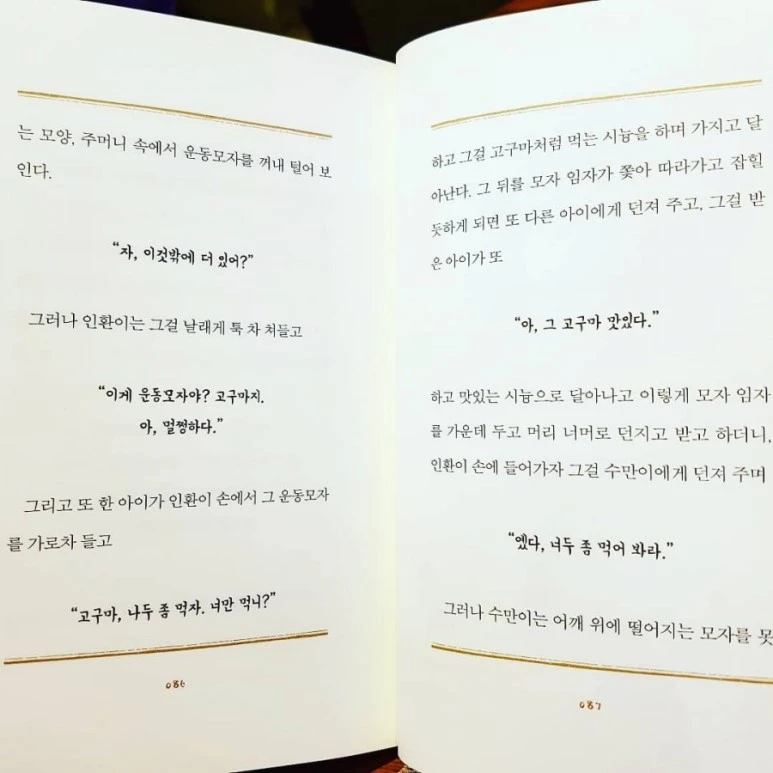 는 모양, 주머니 속에서 운동모자를 꺼내 털어 보
인다.
“자, 이것밖에 더 있어?”
그러나 인환이는 그걸 날래게 툭 차 처들고
“이게 운동모자야? 고구마지.
아, 멀쩡하다.”
그리고 또 한 아이가 인환이 손에서 그 운동모자
를 가로차 들고
“고구마, 나두 좀 먹자. 너만 먹니?”
086
하고 그걸 고구마처럼 먹는 시늉을 하며 가지고 달
아난다. 그 뒤를 모자 임자가 쫓아 따라가고 잡힐
듯하게 되면 또 다른 아이에게 던져 주고, 그걸 받
은 아이가 또
“아, 그 고구마 맛있다.”
하고 맛있는 시늉으로 달아나고 이렇게 모자 임자
를 가운데 두고 머리 너머로 던지고 받고 하더니,
인환이 손에 들어가자 그걸 수만이에게 던져 주며
“옜다, 너두 좀 먹어 봐라.”
그러나 수만이는 어깨 위에 떨어지는 모자를 못
087